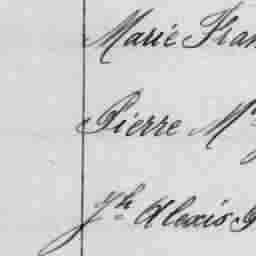 Marie Fran
Pierre M
Jh Alexis